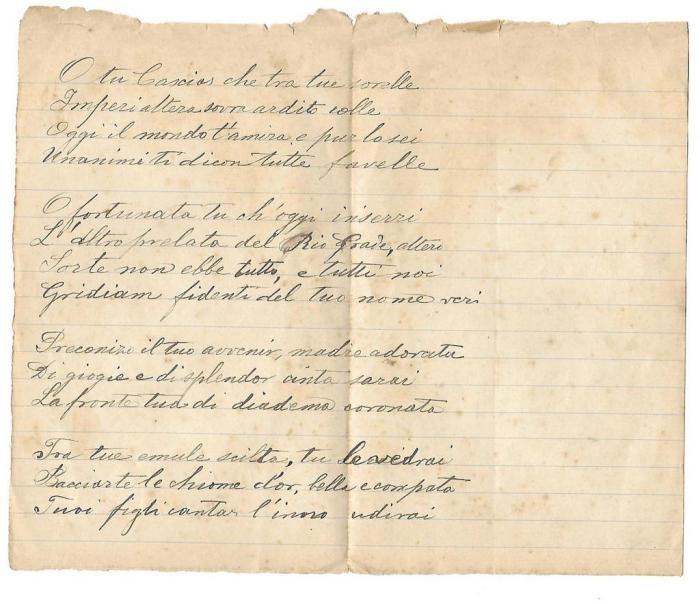 O tu Caxias che tra tue sorelle
Imperi altera sovra ardito colle
Oggi il mondo t'amira e pur lo sei
Unanimi ti dicon tutte favelle
O fortunata tu ch'oggi inserri
L'altro prelato del Rio Grañe, alteri
Sorte non ebbe tutto, e tutti noi
Gridiam fidenti del tuo nome veri
Preconizo il tuo avvenir, madre adorata
Di giogie e di splendor cinta sarai
La fronte tua di diadema coronata
Tra tue emule scilta, tu le vedrai
Bacciarte le chiome d'or, bella e compata
Tuoi figli cantar l'inno udirai